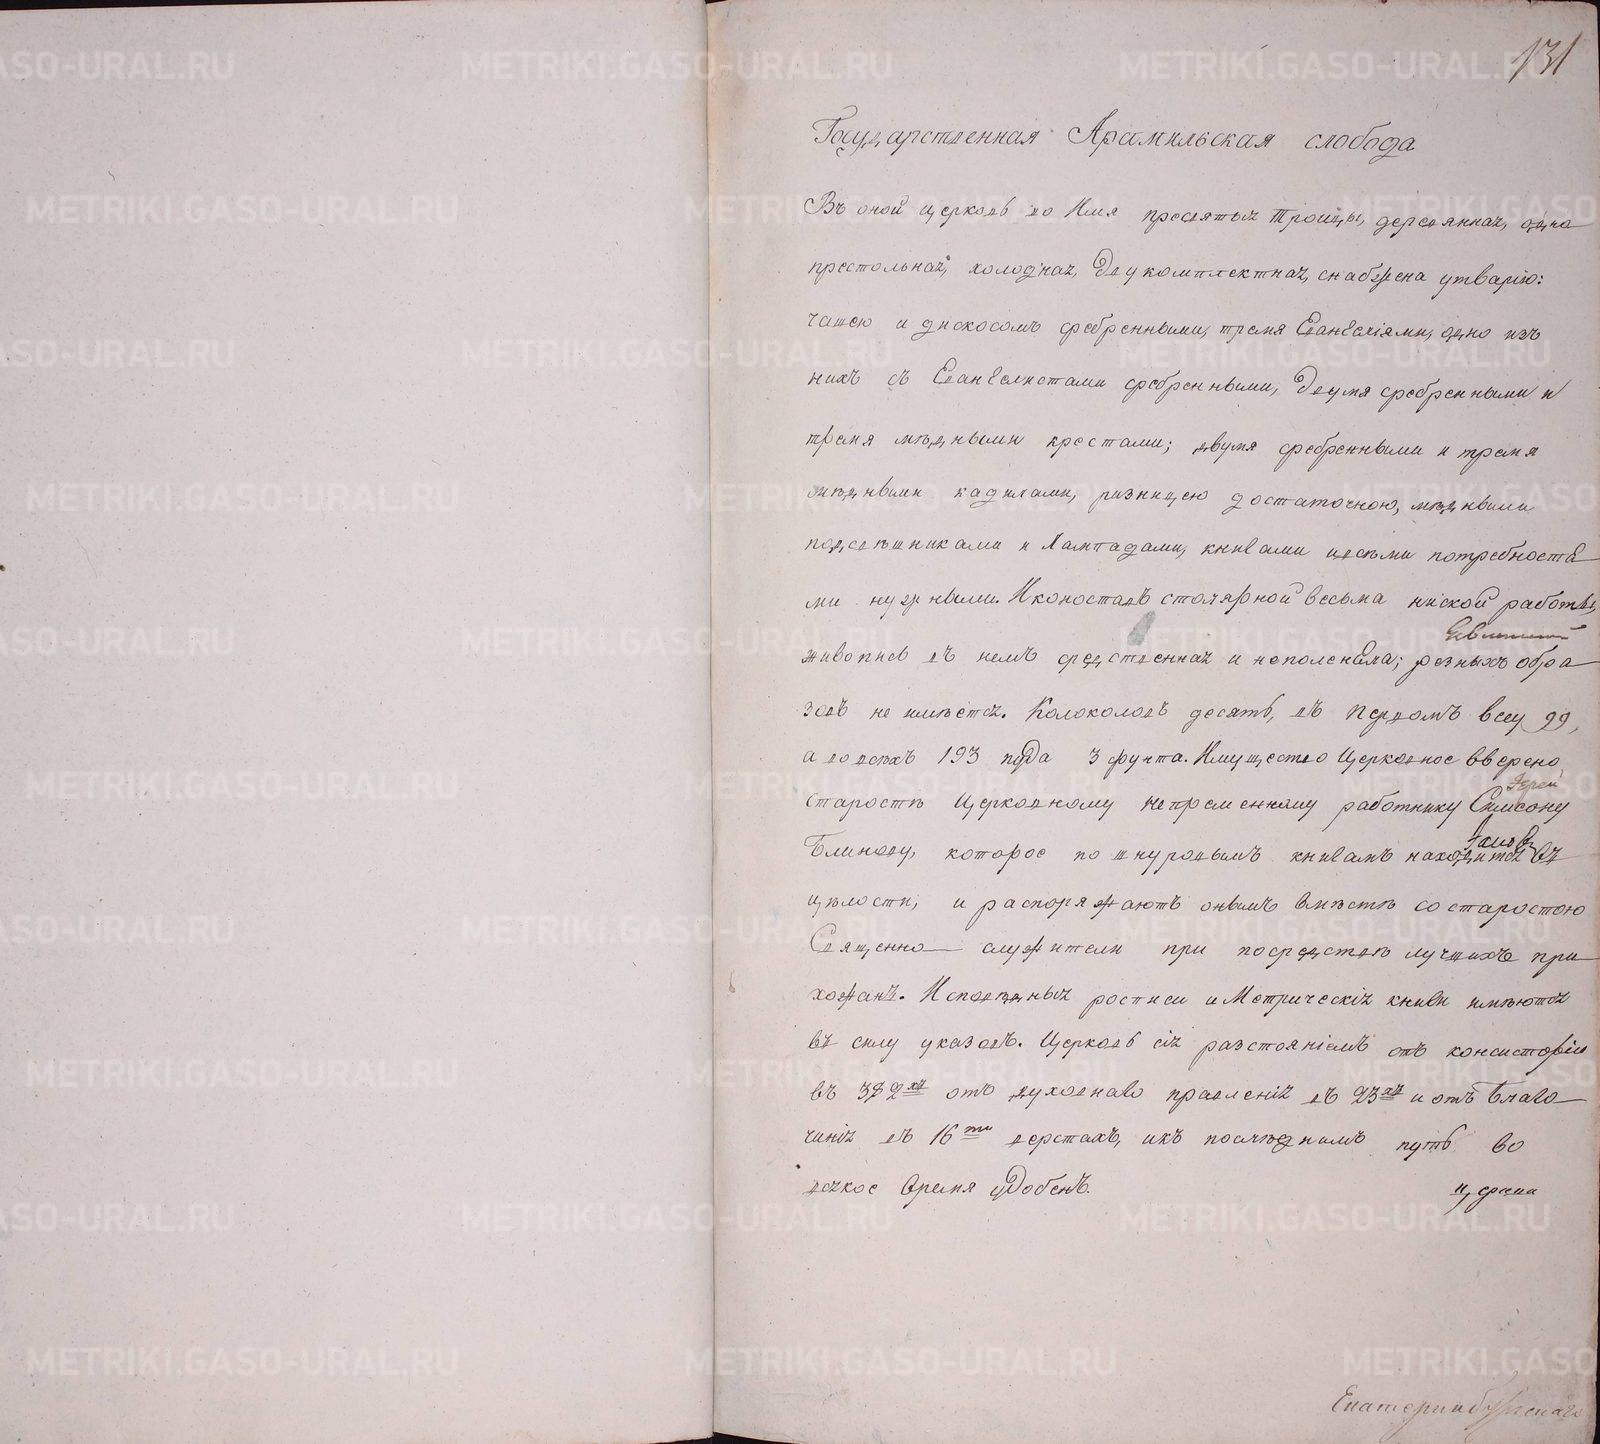 131
Государственная Арамильская слобода
Въ оной церковь во Имя пресвятыя Троицы, деревянная, одно
престольная, холодная, двукомплектная, снабжена утварію:
чашею и дискосомъ сребренными, тремя Евангеліями, одно изъ
нихъ съ Евангелистами сребренными, двумя сребренными и
тремя мѣдными крестами; двумя сребренными и тремя
мѣдными кадилами, ризницею достаточною, мѣдными
подсвѣшниками и лампадами, книгами всѣми потребностя
ми нужными. Иконостасъ столярной весьма ниской работы,
живопись въ немъ средственная и неполенѣла; резныхъ обра
зовъ не имѣется. Колоколовъ десять, въ первомъ весу 99,
а во всѣхъ 193 пуда 3 фунта. Имущество Церковное вверено
Іерей
старостѣ Церковному непременному работнику Симеону
Блинову, которое по шнуровымъ книгамъ находится въ
цѣлости; и распоряжаютъ онымъ вмѣстѣ со старостою
Священно служители при посредствѣ лучшихъ при
хожанъ. Исповѣдныя росписи и Метрическія книги имѣются
въ силу указовъ. Церковь сія разстояніемъ отъ консисторіи
въ 382хъ отъ духовнаго правленія въ 23хъ и отъ Благо
чинія въ 16ти верстахъ, и къ последнимъ путь во
всякое время удобенъ.
Екатеринбургскаго
METRIKI.GASO-URAL.RU